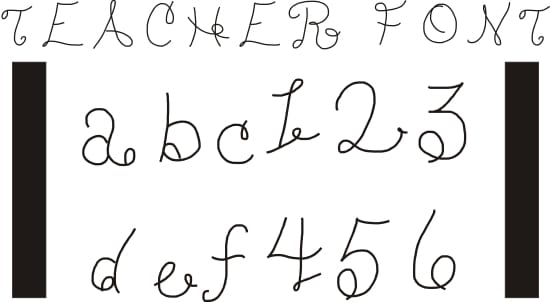 TEACHER FONT
abc123
def456